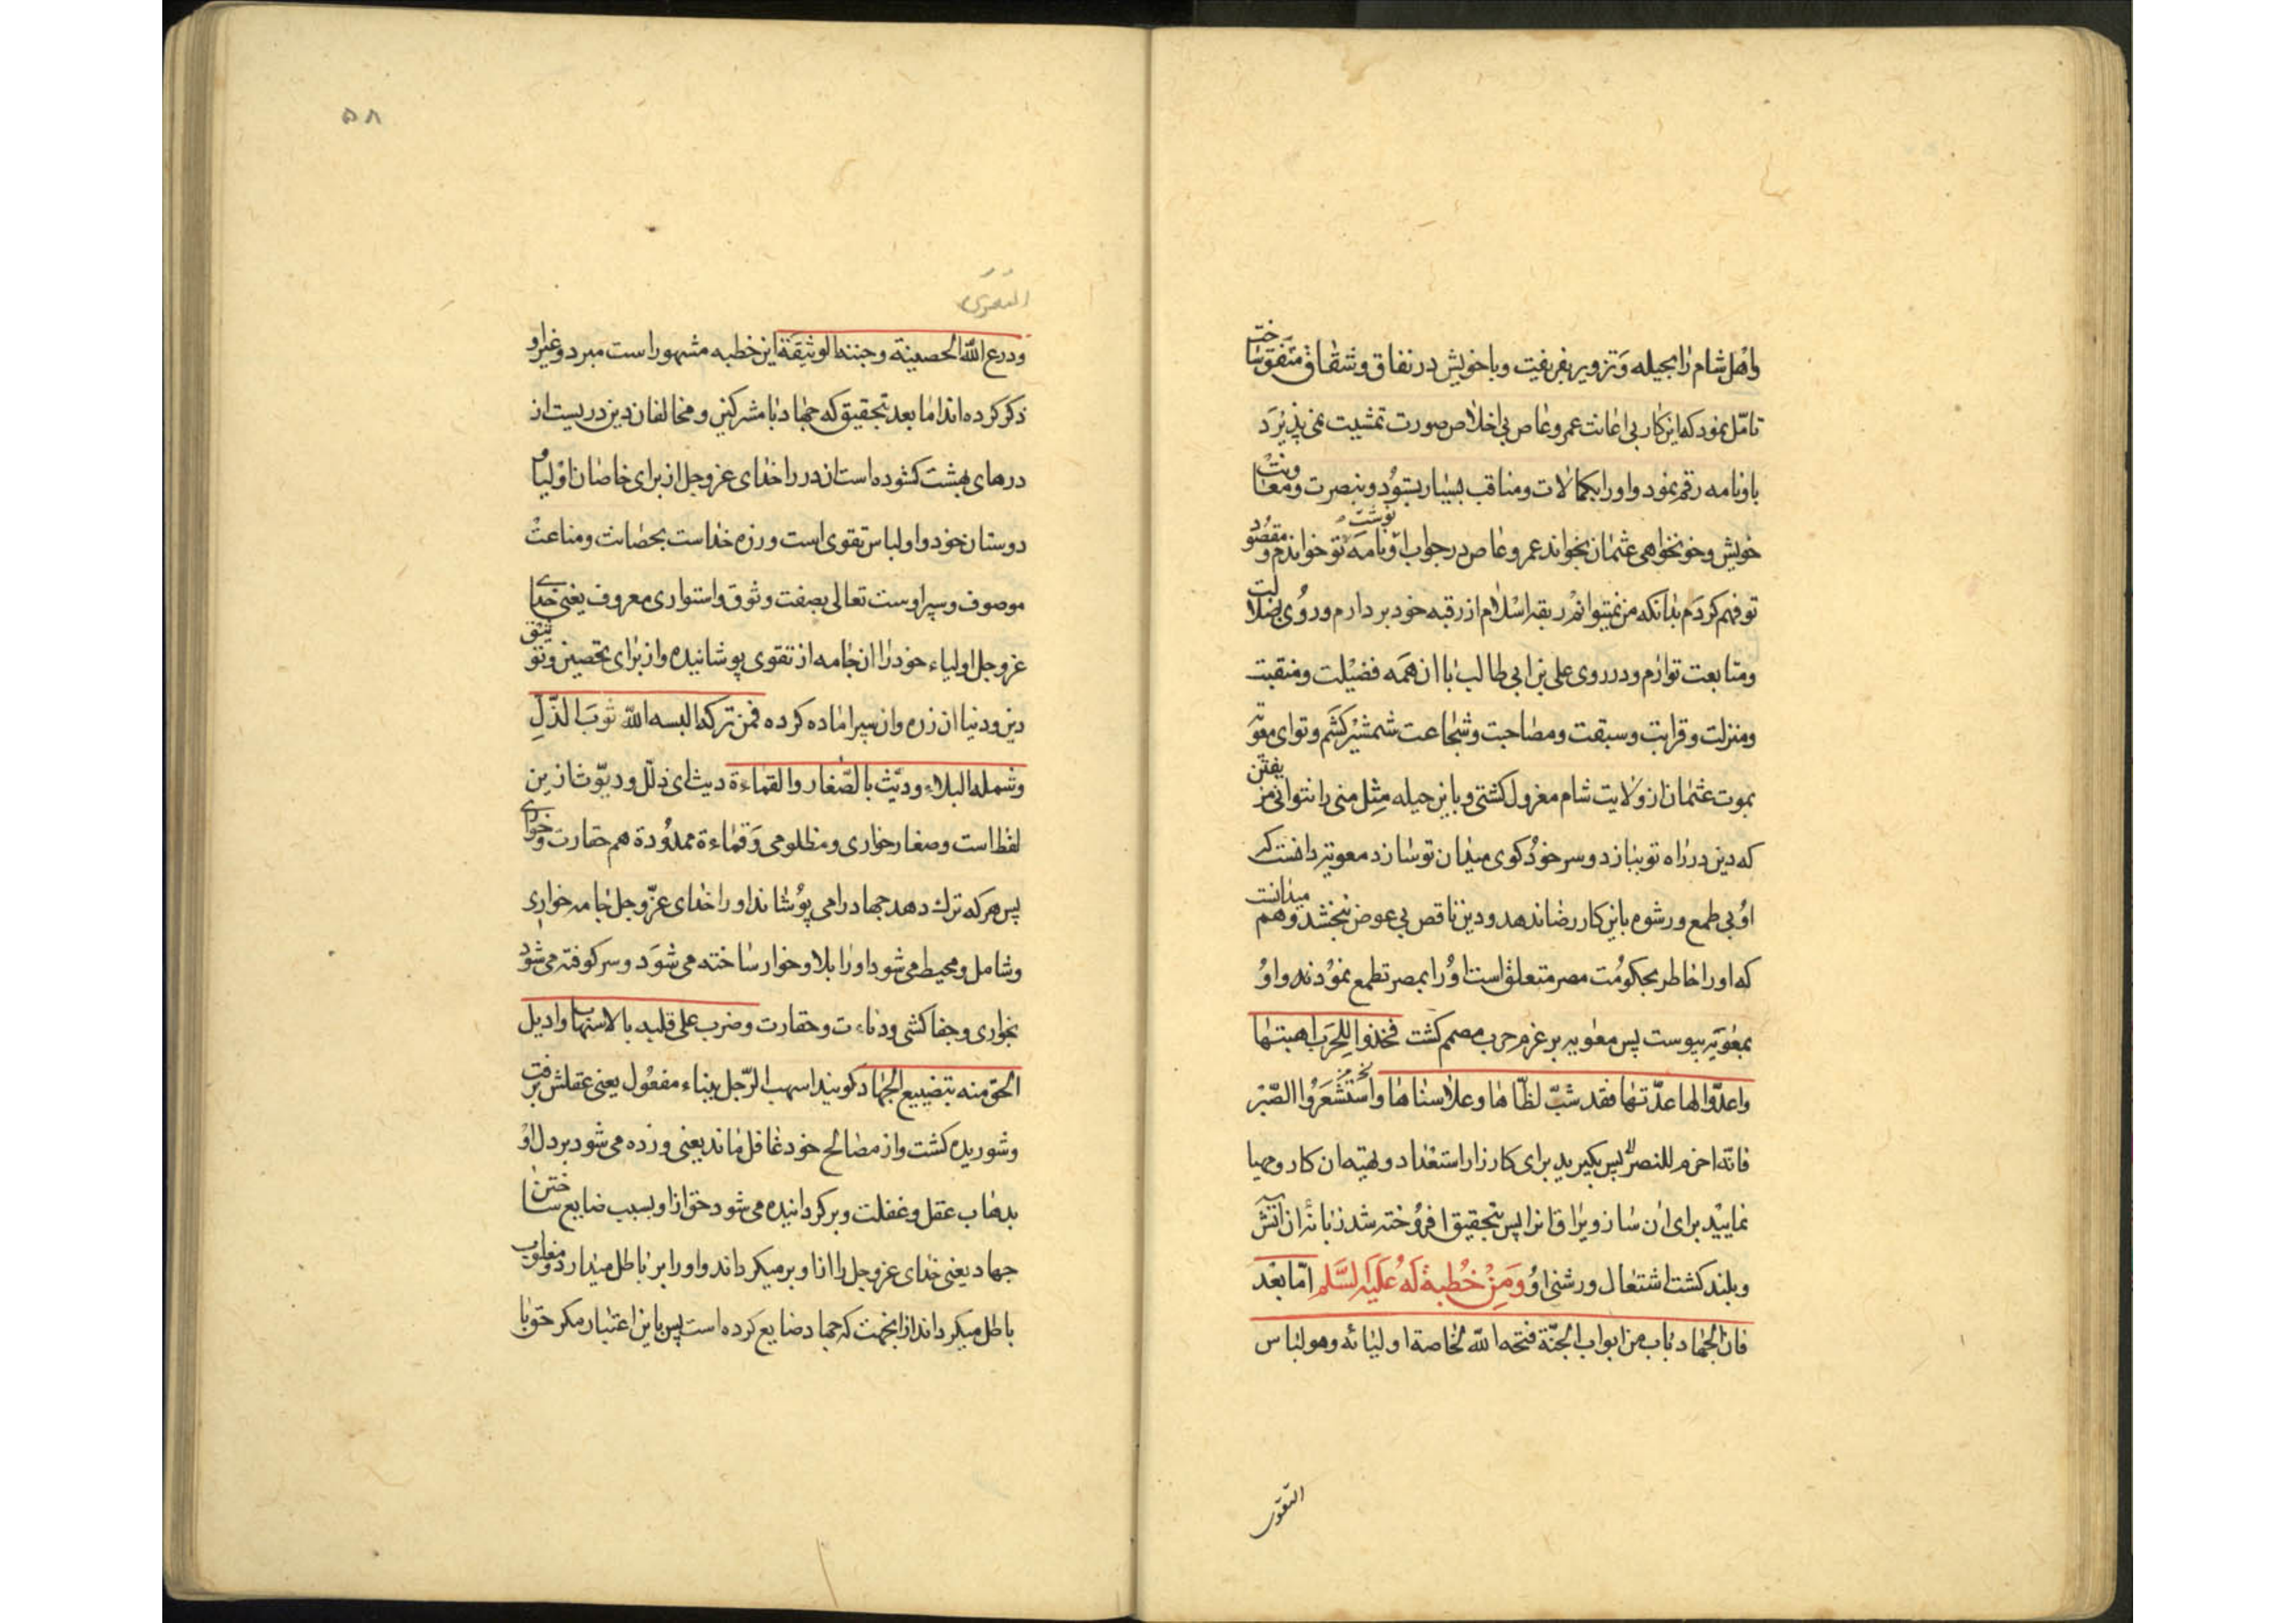 واهل شام را بحیله و تزویر بفریفت و با خویش در نفاق و شقاق متفق ساخت
تامّل نمود که این کار بی اعانت عمرو عاص بی اخلاص صورت تمشیت نمی پذیرد
باو نامه رقم نمود و او را بکمالات و مناقب بسیار بستود و بنصرت و معاونت
خویش و خونخواهی عثمان بخواند عمرو عاص در جواب او نوشت نامه تو خواندم و مقصود
تو فهم کردم بدانکه من نمیتوانم ربقه اسلام از رقبه خود بردارم و روی بضلالت
و متابعت تو ارم و در روی علی بن ابی طالب با ان همه فضیلت و منقبت
و منزلت و قرابت و سبقت و مصاحبت و شجاعت شمشیر کشم و تو ای معویه
بموت عثمان از ولایت شام معزول کشتی و باین حیله مثل منی را نتوانی فریفتن
که دین در راه تو ببازد و سر خود کوی میدان تو سازد معویه دانست که
او بی طمع و رشوه باین کار رضا ندهد و دین ناقص بی عوض نبخشد و هم میدانست
که او را خاطر بحکومت مصر متعلق است او را بمصر تطمع نمودند و او
بمعویه پیوست پس معویه بر عزم حرب مصمم کشت فخذوا للحرب اهبتها
واعدّوا لها عدّتها فقد شبّ لظاها وعلا سناها واستشعروا الصّبر
فانّه احزم للنصر پس بکیرید برای کارزار استعداد و تهیه ان کار و مهیا
نمایید برای ان ساز و یراق انرا پس بتحقیق افروخته شد زبانه ان اتش
و بلند کشت اشتعال و رشنی او وَمِنْ خُطبة لَهُ عَلَیه السَّلم امّا بعد
فان الجهاد باب من ابواب الجنّة فتحه اللّه لخاصة اولیائه وهو لباس
التقوی
۵۸
التقوی
ودرع اللّه الحصینة وجنته الوثیقة این خطبه مشهور است مبرد و غیر او
ذکر کرده اند اما بعد بتحقیق که جهاد با مشرکین و مخالفان دین دریست از
درهای بهشت کشوده است ان در را خدای عز و جل از برای خاصان اولیا و
دوستان خود و او لباس تقوی است و زره خداست بحصانت و مناعت
موصوف و سپر اوست تعالی بصفت وثوق و استواری معروف یعنی خدای
عز و جل اولیاء خود را ان جامه از تقوی پوشانیده و از برای تحصین و توثیق
دین و دنیا ان زره و ان سپر اماده کرده فمن ترکه البسه اللّه ثوب الذّلّ
وشمله البلاء ودیّث بالصّغار والقماءة دیث ای ذلّل و دیّوث از این
لفظ است و صغار خواری و مظلومی و قماءة ممدودة هم حقارت و خواری
پس هر که ترك دهد جهاد را می پوشاند او را خدای عزّ و جل جامه خواری
و شامل و محیط می شود او را بلا و خوار ساخته می شود و سرکوفته می شود
بخواری و جفاکشی و دناءت و حقارت وضرب علی قلبه بالاسهاب وادیل
الحق منه بتضییع الجهاد کویند اسهب الرّجل ببناء مفعول یعنی عقلش برفت
و شوریده کشت و از مصالح خود غافل ماند یعنی و زده می شود بر دل او
بذهاب عقل و غفلت و بر کردانیده می شود حق از او بسبب ضایع ساختن
جهاد یعنی خدای عز و جل را از او بر میکرداند و او را بر باطل میدارد و مغلوب
باطل میکرداند از انجهت که جهاد ضایع کرده است پس باین اعتبار مکر حق با